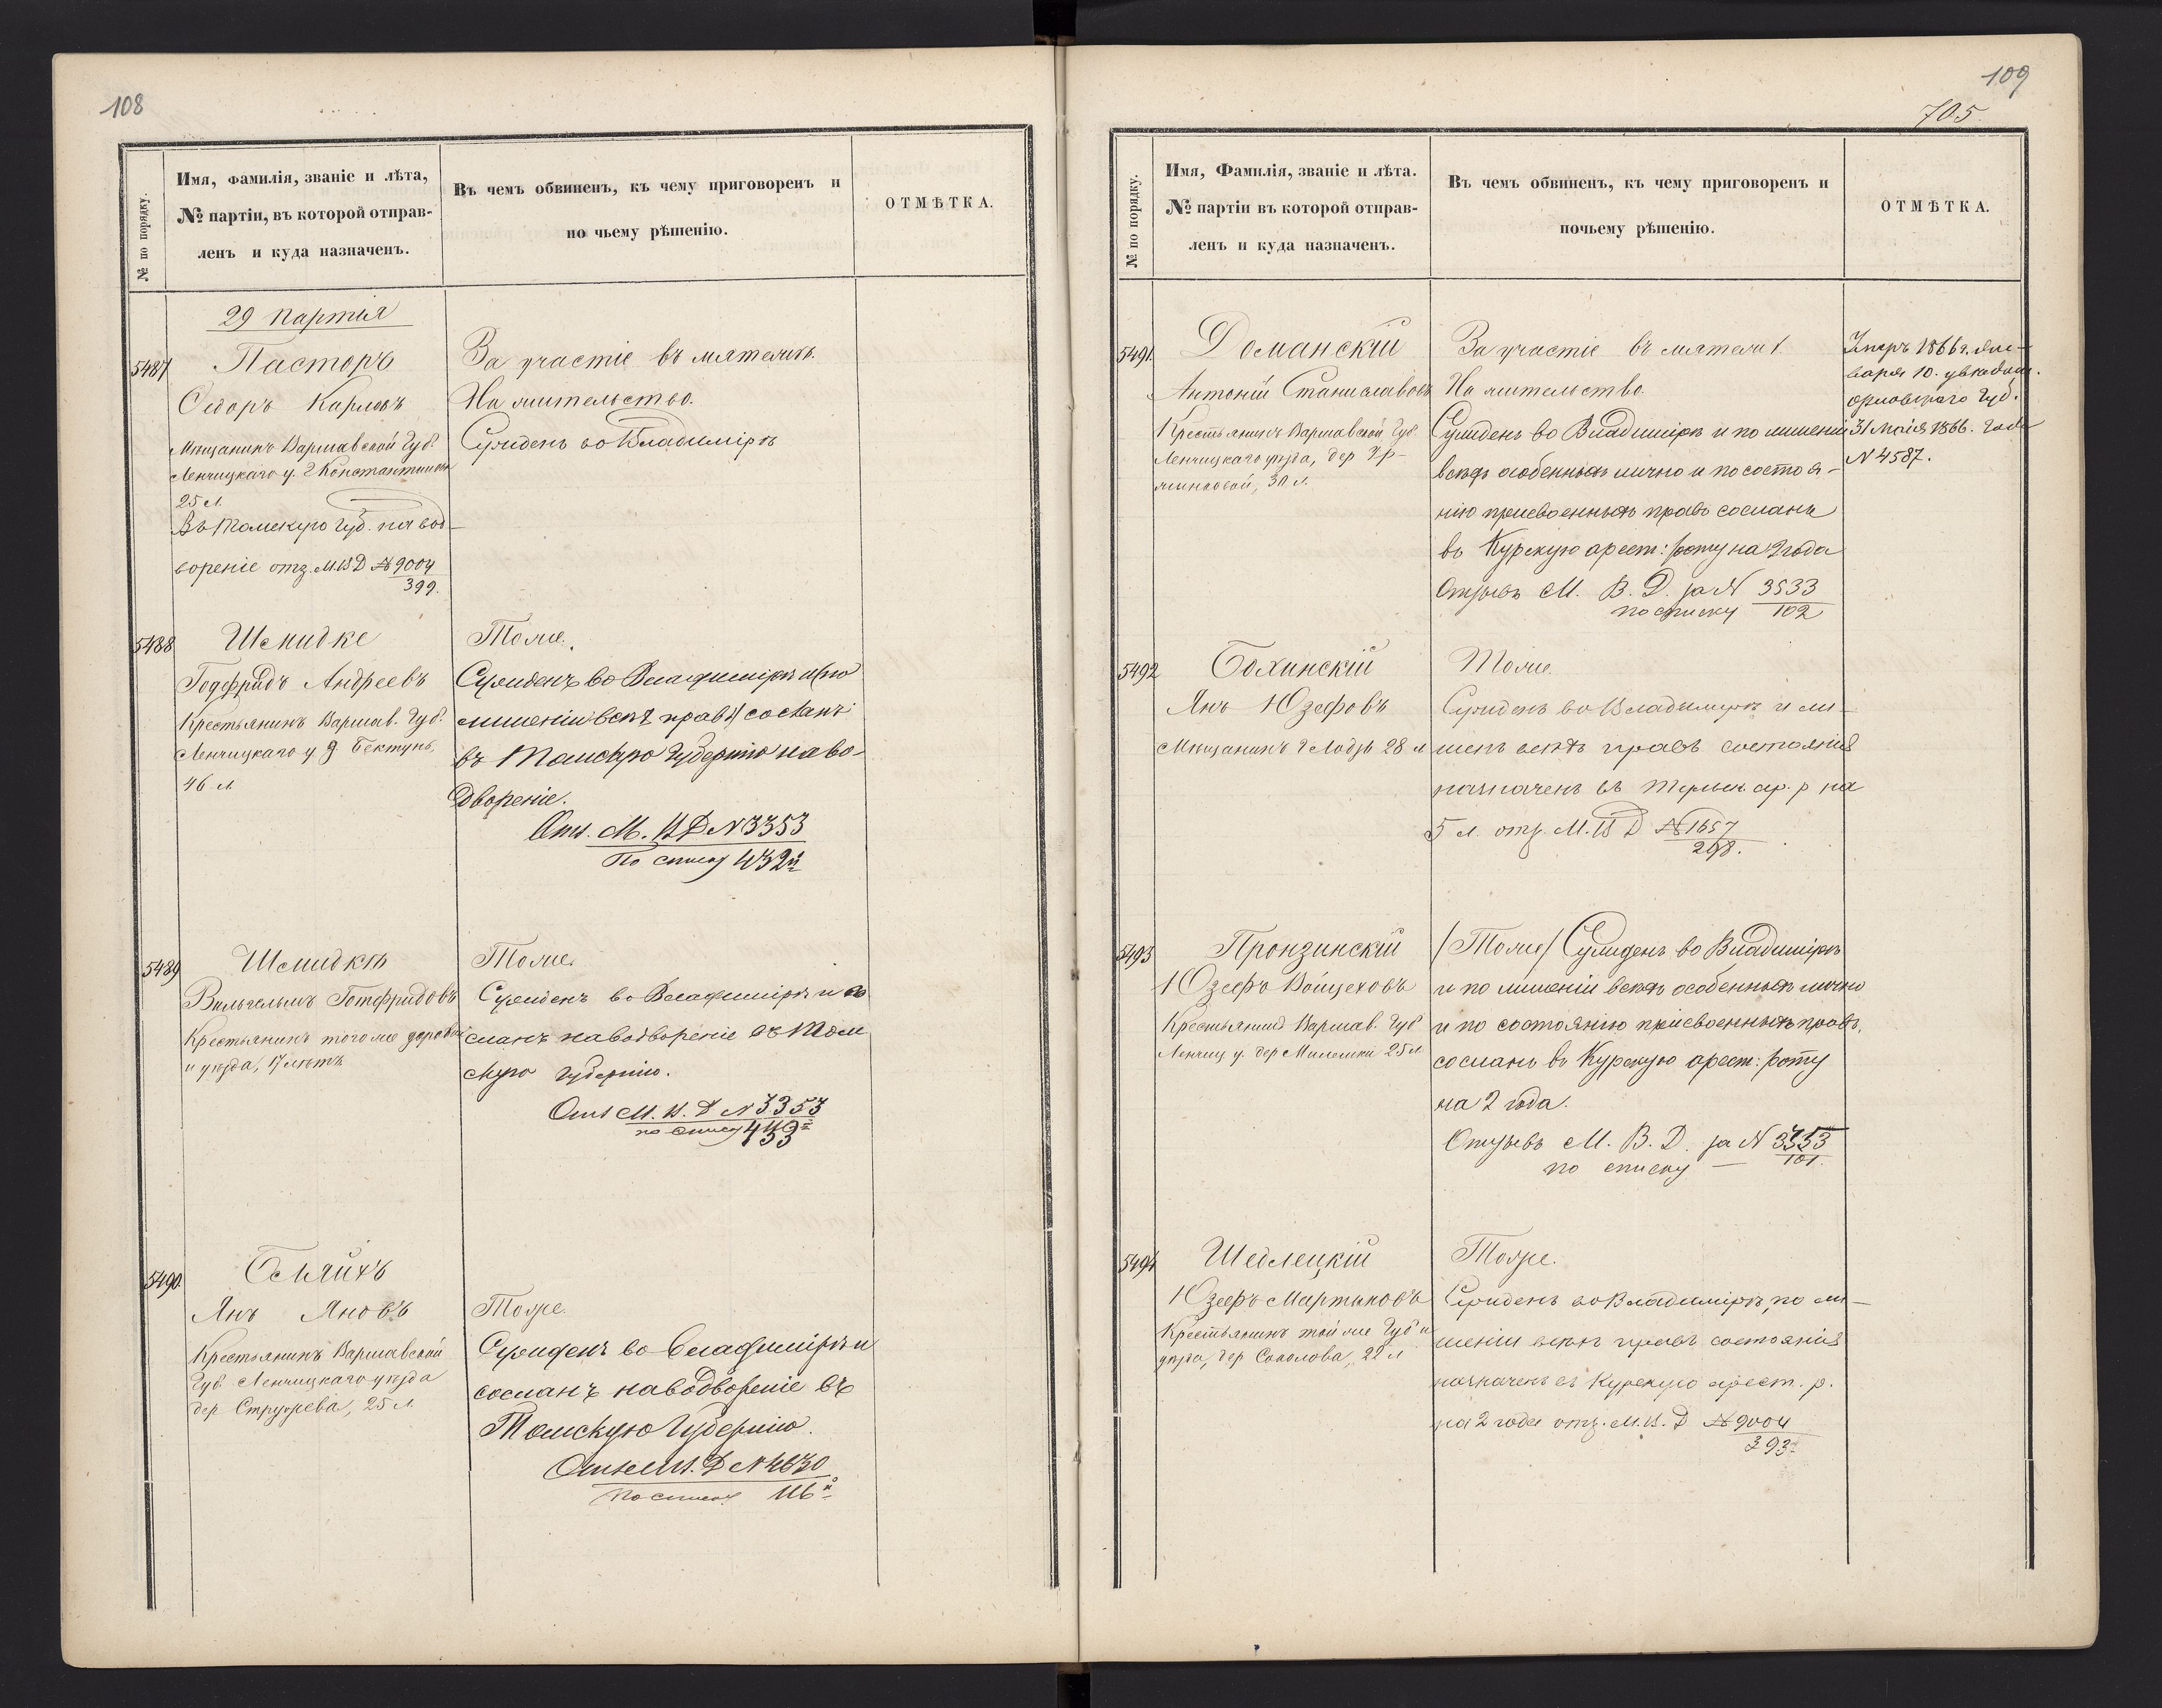 108
№ по порядку.
Имя, Фамилія, званіе и лѣта,
№ партіи, въ которой отправ-
ленъ и куда назначенъ.
Въ чемъ обвиненъ, къ чему приговоренъ и
по чьему рѣшенію.
ОТМѢТКА.
29 партія
5487
Пасторъ
Ѳедоръ Карловъ
Мѣщанинъ Варшавской Губ.
Ленчицкаго у. г. Константинова
25 л.
Въ Томскую Губ. на вод-
вореніе отз. М.В.Д. № 9004
399.
За участіе въ мятежѣ.
На жительство.
Сужденъ во Владимірѣ
5488
Шмидке
Годфридъ Андреевъ
Крестьянинъ Варшав. Губ.
Ленчицкаго у. д.
46 л.
Тоже.
Сужденъ во Владимірѣ и (по
лишеніи всѣхъ правъ) сосланъ
въ Томскую Губернію на во-
двореніе.
Отз. М. В. Д. № 3353
По списку 432й
5489
Шмидке
Вильгельмъ Готфридовъ
Крестьянинъ того же
и уѣзда, 17 лѣтъ
Тоже.
Сужденъ во Владимірѣ и со
сланъ на водвореніе въ Том
скую Губернію.
Отз. М. В. Д. № 3353
по списку 433
5490.
Янъ Яновъ
Крестьянинъ Варшавской
Губ. Ленчицкаго уѣзда
дер.
25 л.
Тоже.
Сужденъ во Владимірѣ и
сосланъ на водвореніе въ
Томскую Губернію.
Отз. М.В.Д. № 4630
По списку 116й
109
705
№ по порядку.
Имя, Фамилія, званіе и лѣта.
№ партіи въ которой отправ-
ленъ и куда назначенъ.
Въ чемъ обвиненъ, къ чему приговоренъ и
почьему рѣшенію.
ОТМѢТКА.
5491.
Доманскій
Антоній Станиславовъ
Крестьянинъ Варшавской Губ.
Ленчицкаго уѣзда, дер.
30 л.
За участіе въ мятежѣ.
На жительство.
Сужденъ во Владимірѣ и по лишеніи
всѣхъ особенныхъ лично и по состоя-
нію присвоенныхъ правъ сосланъ
въ Курскую арест: роту на 2 года
Отзывъ М. В. Д. за № 3533
по списку 102
Умеръ 1866 г. Ян-
варя 10. увѣдом.
орловскаго Губ.
31 Маія 1866. Года
N 4587.
5492
Бохинскій
Янъ Юзефовъ
Мѣщанинъ г. Лодзь 28 л
Тоже.
Сужденъ во Владимірѣ и ли-
шенъ всѣхъ правъ состоянія
назначенъ въ ар. р на
5 л. отз. М.В.Д. № 1657
298.
5493
Пронзинскій
Юзефъ Войцеховъ
Крестьянинъ Варшав. Губ
Ленчиц. у. дер Милешки 25 л.
(Тоже) Сужденъ во Владимірѣ
и по лишеніи всѣхъ особенныхъ лично
и по состоянію присвоенныхъ правъ,
сосланъ въ Курскую арест: роту
на 2 года.
Отзывъ М. В. Д. за №
по списку — 101.
5494
Шедлецкій
Юзефъ Мартыновъ
Крестьянинъ той же Губ и
уѣзда, дер Соколова, 22 л
Тоже.
Сужденъ во Владимірѣ, по ли-
шеніи всѣхъ правъ состоянія
назначенъ въ Курскую арест. р.
на 2 года отз. М.В.Д. № 9004
393